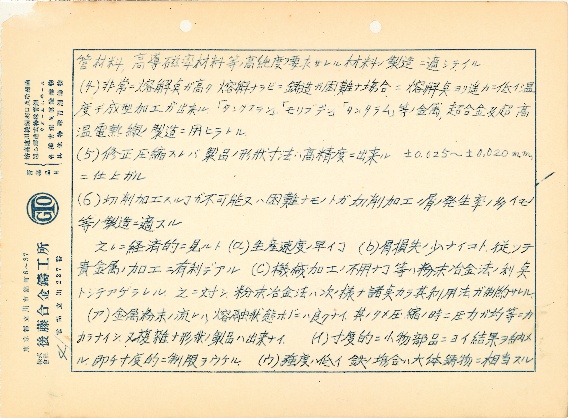 管材料、高導磁率材料等高純度ヲ要求サレル材料ノ製造ニ適シテイル
(4) 非常ニ熔解点ガ高ク熔解ナラビニ鋳造ガ困難ナ場合ニ熔解点ヨリ遙カニ低イ温
度デ成型加工ガ出来ル「タングステン」「モリブデン」「タンタラム」等ノ金属、超合金及超高
温電熱線ノ製造ニ用ヒラル
(5) 修正圧縮スレバ製品ノ形状寸法ハ高精度ニ出来ル ±0.025〜±0.020 m/m
ニ仕上ガル
(6) 切削加工スルコトガ不可能又ハ困難ナモノトカ切削加工ノ屑ノ発生率ノ多イモノ
等ノ製造ニ適スル
之レニ経済的ニ見ルト (a) 生産速度ノ早イコト (b) 屑損失ノ少ナイコト、従ッテ
貴金属ノ加工ニ有利デアル (c) 機械加工ノ不用ナコト等ハ粉末冶金法ノ利点
トシテアゲラレル 之ニ対シ、粉末冶金法ハ次ノ様ナ諸点カラ其利用法ガ制限サレル
(ア) 金属粉末ノ流レハ熔融状態ホドニハ良クナイ 其ノタメ圧縮ノ時ニ圧力ガ均等ニカ
カラナイ、又複雑ナ形状ノ製品ハ出来ナイ (イ) 寸度的ニ小物部品ニヨイ結果ヲ納メ
ル 即チ寸度的ニ制限ヲウケル (ウ) 強度ハ低イ 鉄ノ場合ハ大体鋳物ニ相当スル
株式会社 後藤合金鋳工所
東京都立川市
電話立川 237番